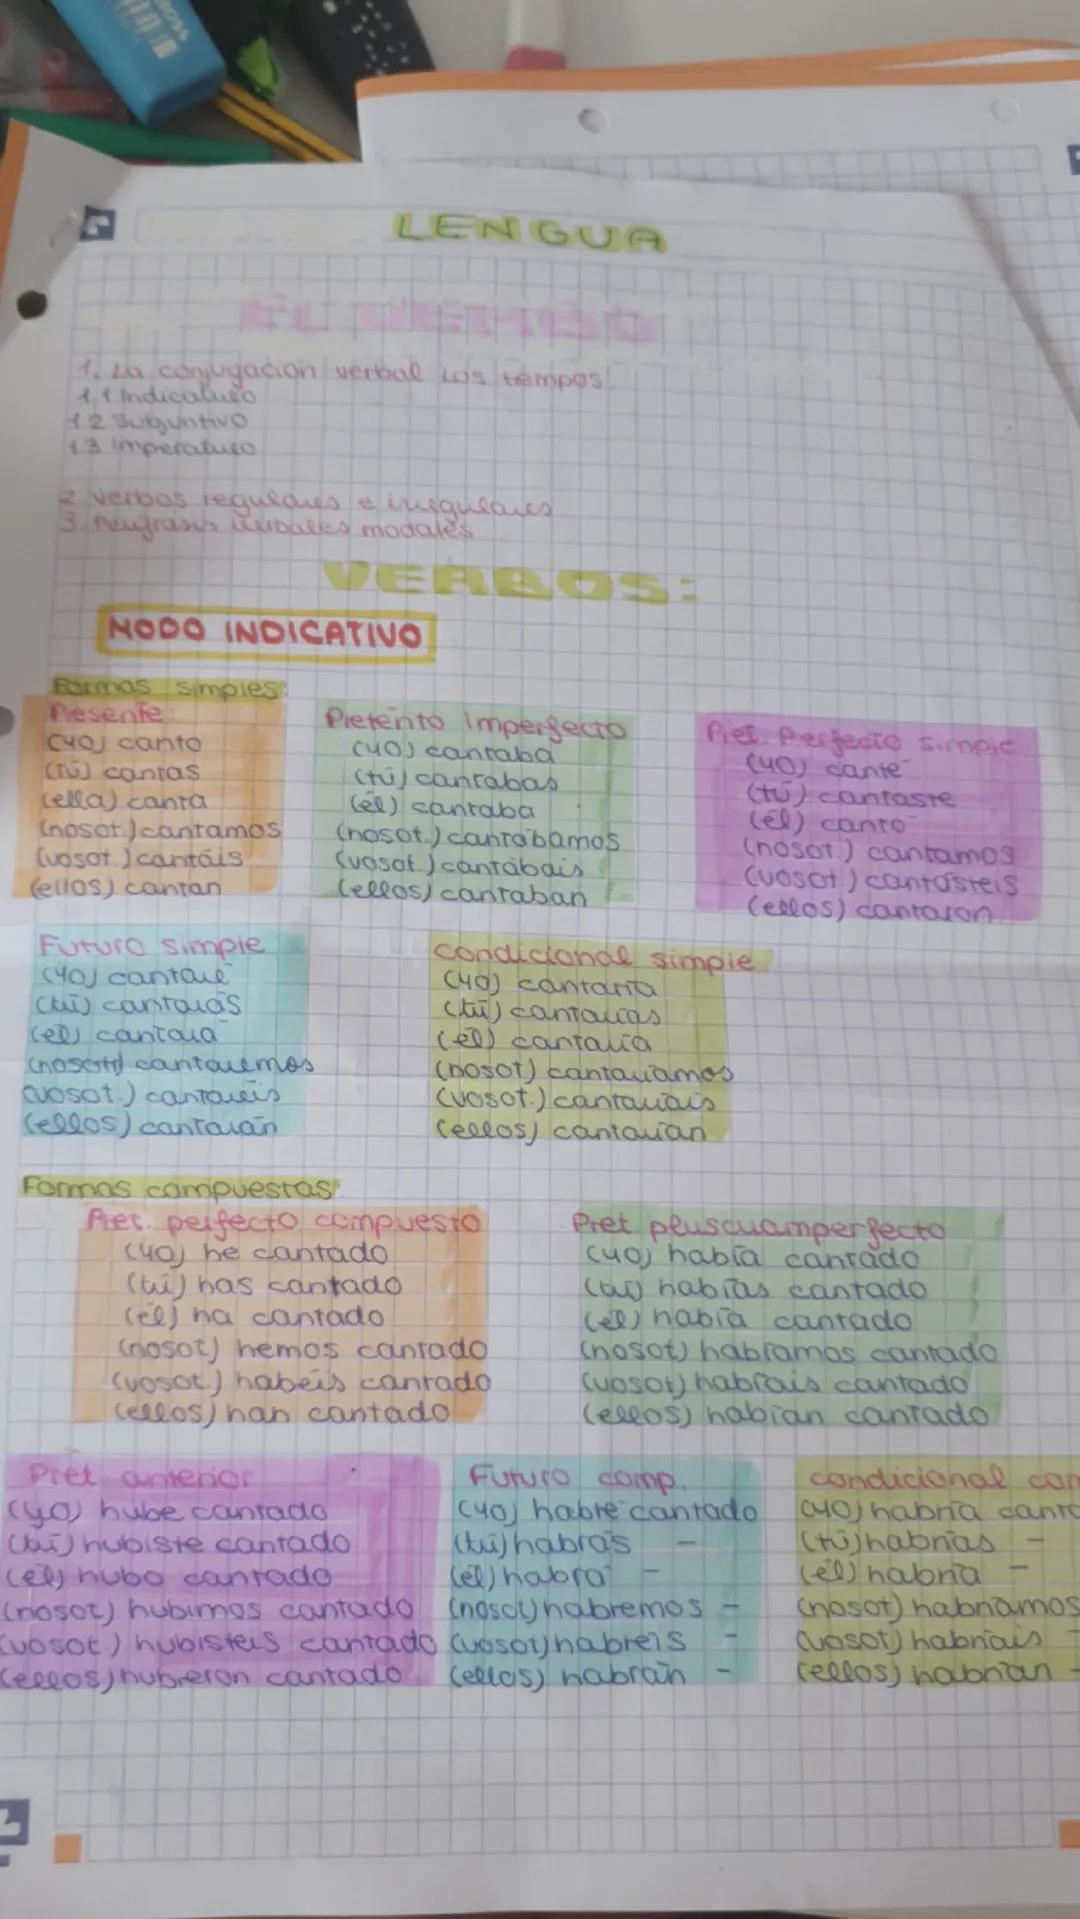 LENGUA
EL VERBO
1. La conjugación verbal Los tiempos
1.1 Indicativo
1.2 Subjuntivo
1.3 Imperativo
2 Verbos regulares e irregulares
3 Perífrasis verbales modales
VERBOS:
MODO INDICATIVO
Formas simples:
Presente
(yo) canto
(tú) cantas
(ella) canta
(nosot.) cantamos
(vosot.) cantáis
(ellos) cantan
Pretérito imperfecto
(yo) cantaba
(tú) cantabas
(él) cantaba
(nosot.) cantábamos
(vosot.) cantábais
(ellos) cantaban
Pret. Perfecto simple
(yo) canté
(tú) cantaste
(él) cantó
(nosot.) cantamos
(vosot.) cantásteis
(ellos) cantaron
Futuro simple
(yo) cantaré
(tú) cantarás
(él) cantará
cantaremos
(vosot.) cantaréis
(ellos) cantarán
condicional simple
(yo) cantaría
(tú) cantarías
(él) cantaría
(nosot) cantaríamos
(vosot.) cantaríais
(ellos) cantarían
Formas compuestas:
Pret. perfecto compuesto
(yo) he cantado
(tú) has cantado
(él) ha cantado
(nosot) hemos cantado
(vosot.) habéis cantado
(ellos) han cantado
Pret. pluscuamperfecto
(yo) había cantado
(tú) habías cantado
(él) había cantado
(nosot) habíamos cantado
(vosot) habíais cantado
(ellos) habían cantado
Pret anterior
(yo) hube cantado
(tú) hubiste cantado
(él) hubo cantado
(nosot) hubimos cantado
(vosot.) hubisteis cantado
(ellos) hubieron cantado
Futuro comp.
(yo) habré cantado
(tú) habrás -
(él) habrá -
(nosot) habremos -
(vosot) habréis -
(ellos) habrán -
condicional com
(yo) habría canta
(tú) habrías -
(él) habría -
(nosot) habríamos
(vosot) habríais -
(ellos) habrían -